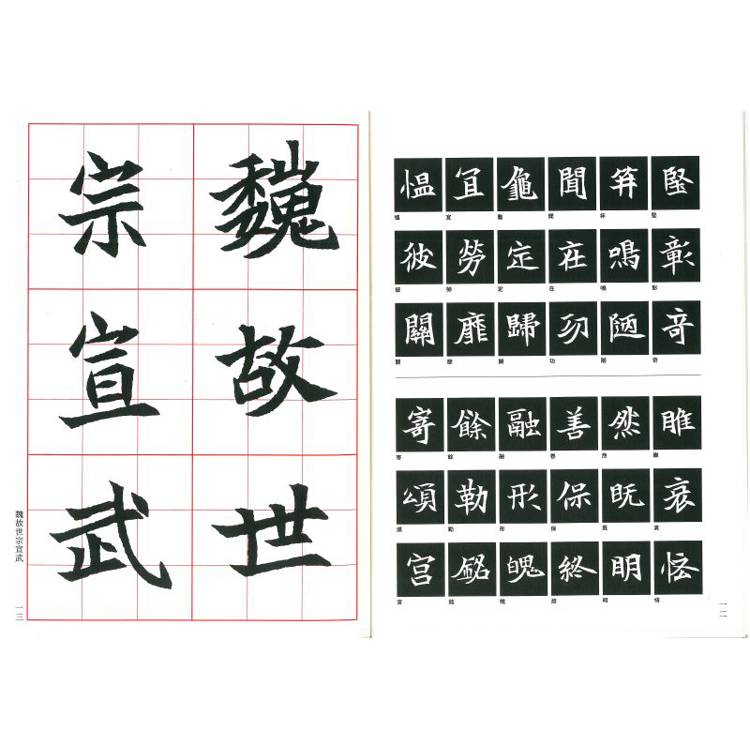 堅彰奇
鳴陋
聞在功
龜定歸
宜勞靡
愠彼關
睢哀恠
然既明
善保終
融形魄
餘勒銘
寄頌宮
一二
魏故世
宗宣武
魏故世宗宣武
一三